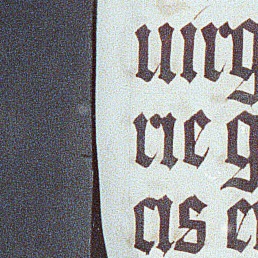 uirg
rie g
as